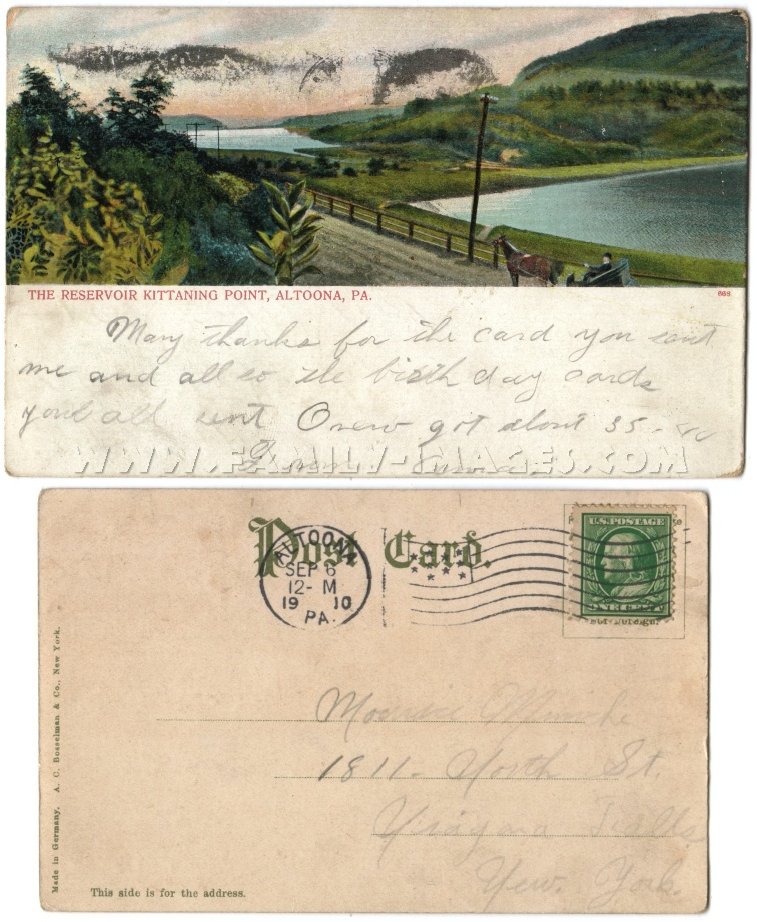 THE RESERVOIR KITTANING POINT, ALTOONA, PA.
668
Many thanks for the card you sent
me and all so the birth day cards
you all sent got about 35
WWW.FAMILY-IMAGES.COM
Post Card.
ALTOONA
SEP 6
12- M
19 10
PA.
U.S. POSTAGE
ONE CENT
1811. North St.
Falls
New. York.
Made in Germany. A. C. Bosselman & Co., New York.
This side is for the address.